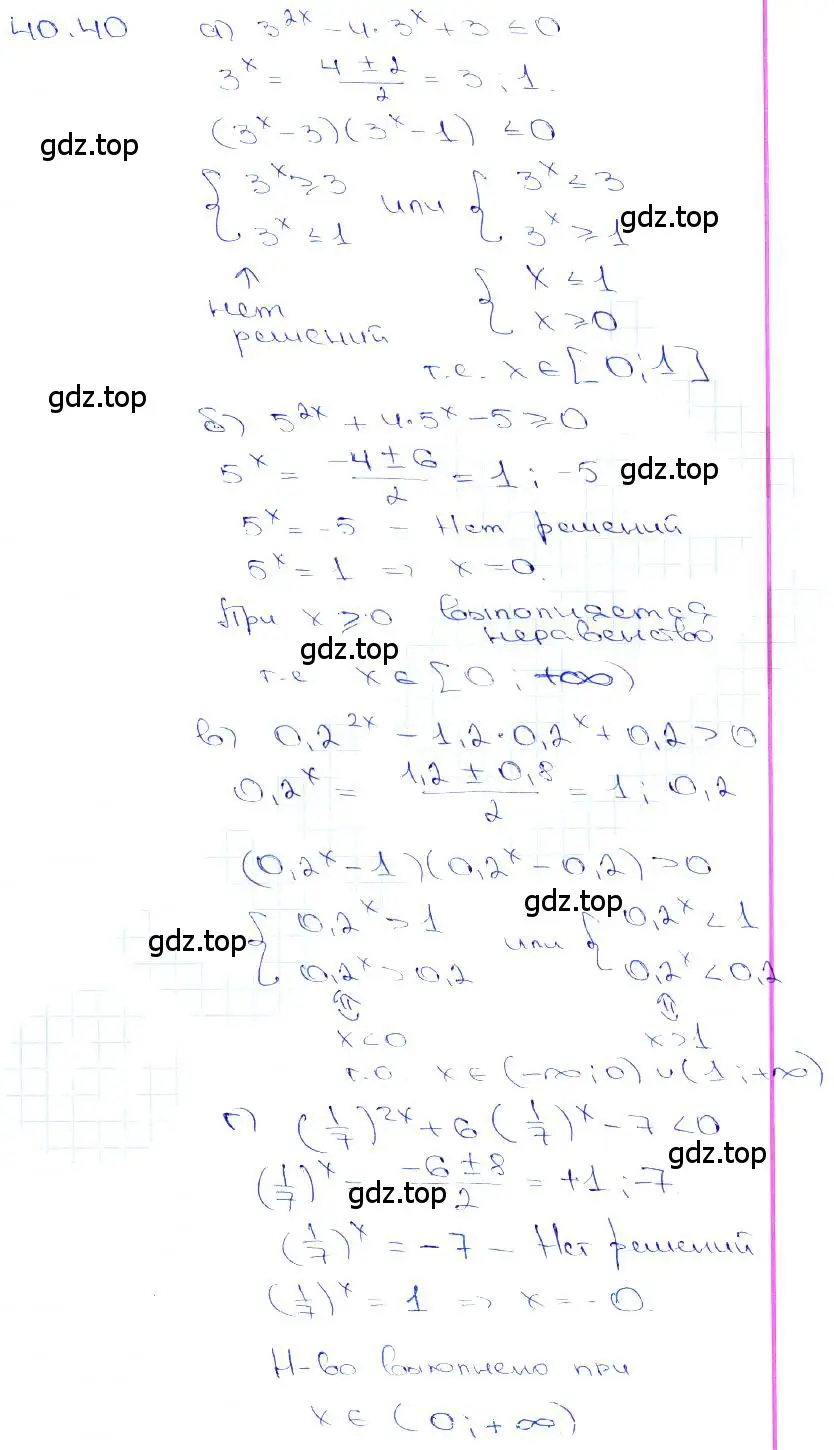 40.40 а) 3^{2x} - 4·3^x + 3 ≤ 0
3^x = \frac{4 ± 2}{2} = 3; 1.
(3^x - 3)(3^x - 1) ≤ 0
gdz.top
{ 3^x ≥ 3 или { 3^x ≤ 3
gdz.top
3^x ≤ 1 3^x ≥ 1
↑ { x ≤ 1
нет x ≥ 0
решений
т.е. x ∈ [0; 1]
gdz.top
б) 5^{2x} + 4·5^x - 5 ≥ 0
5^x = \frac{-4 ± 6}{2} = 1; -5
gdz.top
5^x = -5 - Нет решений
5^x = 1 => x = 0.
При x ≥ 0 выполняется
неравенство
gdz.top
т.е x ∈ [0; +∞)
в) 0,2^{2x} - 1,2·0,2^x + 0,2 > 0
0,2^x = \frac{1,2 ± 0,8}{2} = 1; 0,2
(0,2^x - 1)(0,2^x - 0,2) > 0
gdz.top
{ 0,2^x > 1 или { 0,2^x < 1
gdz.top
0,2^x > 0,2 0,2^x < 0,2
⇕ ⇕
x < 0 x > 1
т.о x ∈ (-∞; 0) ∪ (1; +∞)
г) (\frac{1}{7})^{2x} + 6(\frac{1}{7})^x - 7 < 0
gdz.top
(\frac{1}{7})^x = \frac{-6 ± 8}{2} = +1; -7
gdz.top
(\frac{1}{7})^x = -7 - Нет решений
(\frac{1}{7})^x = 1 => x = -0.
Н-во выполнено при
x ∈ (0; +∞)